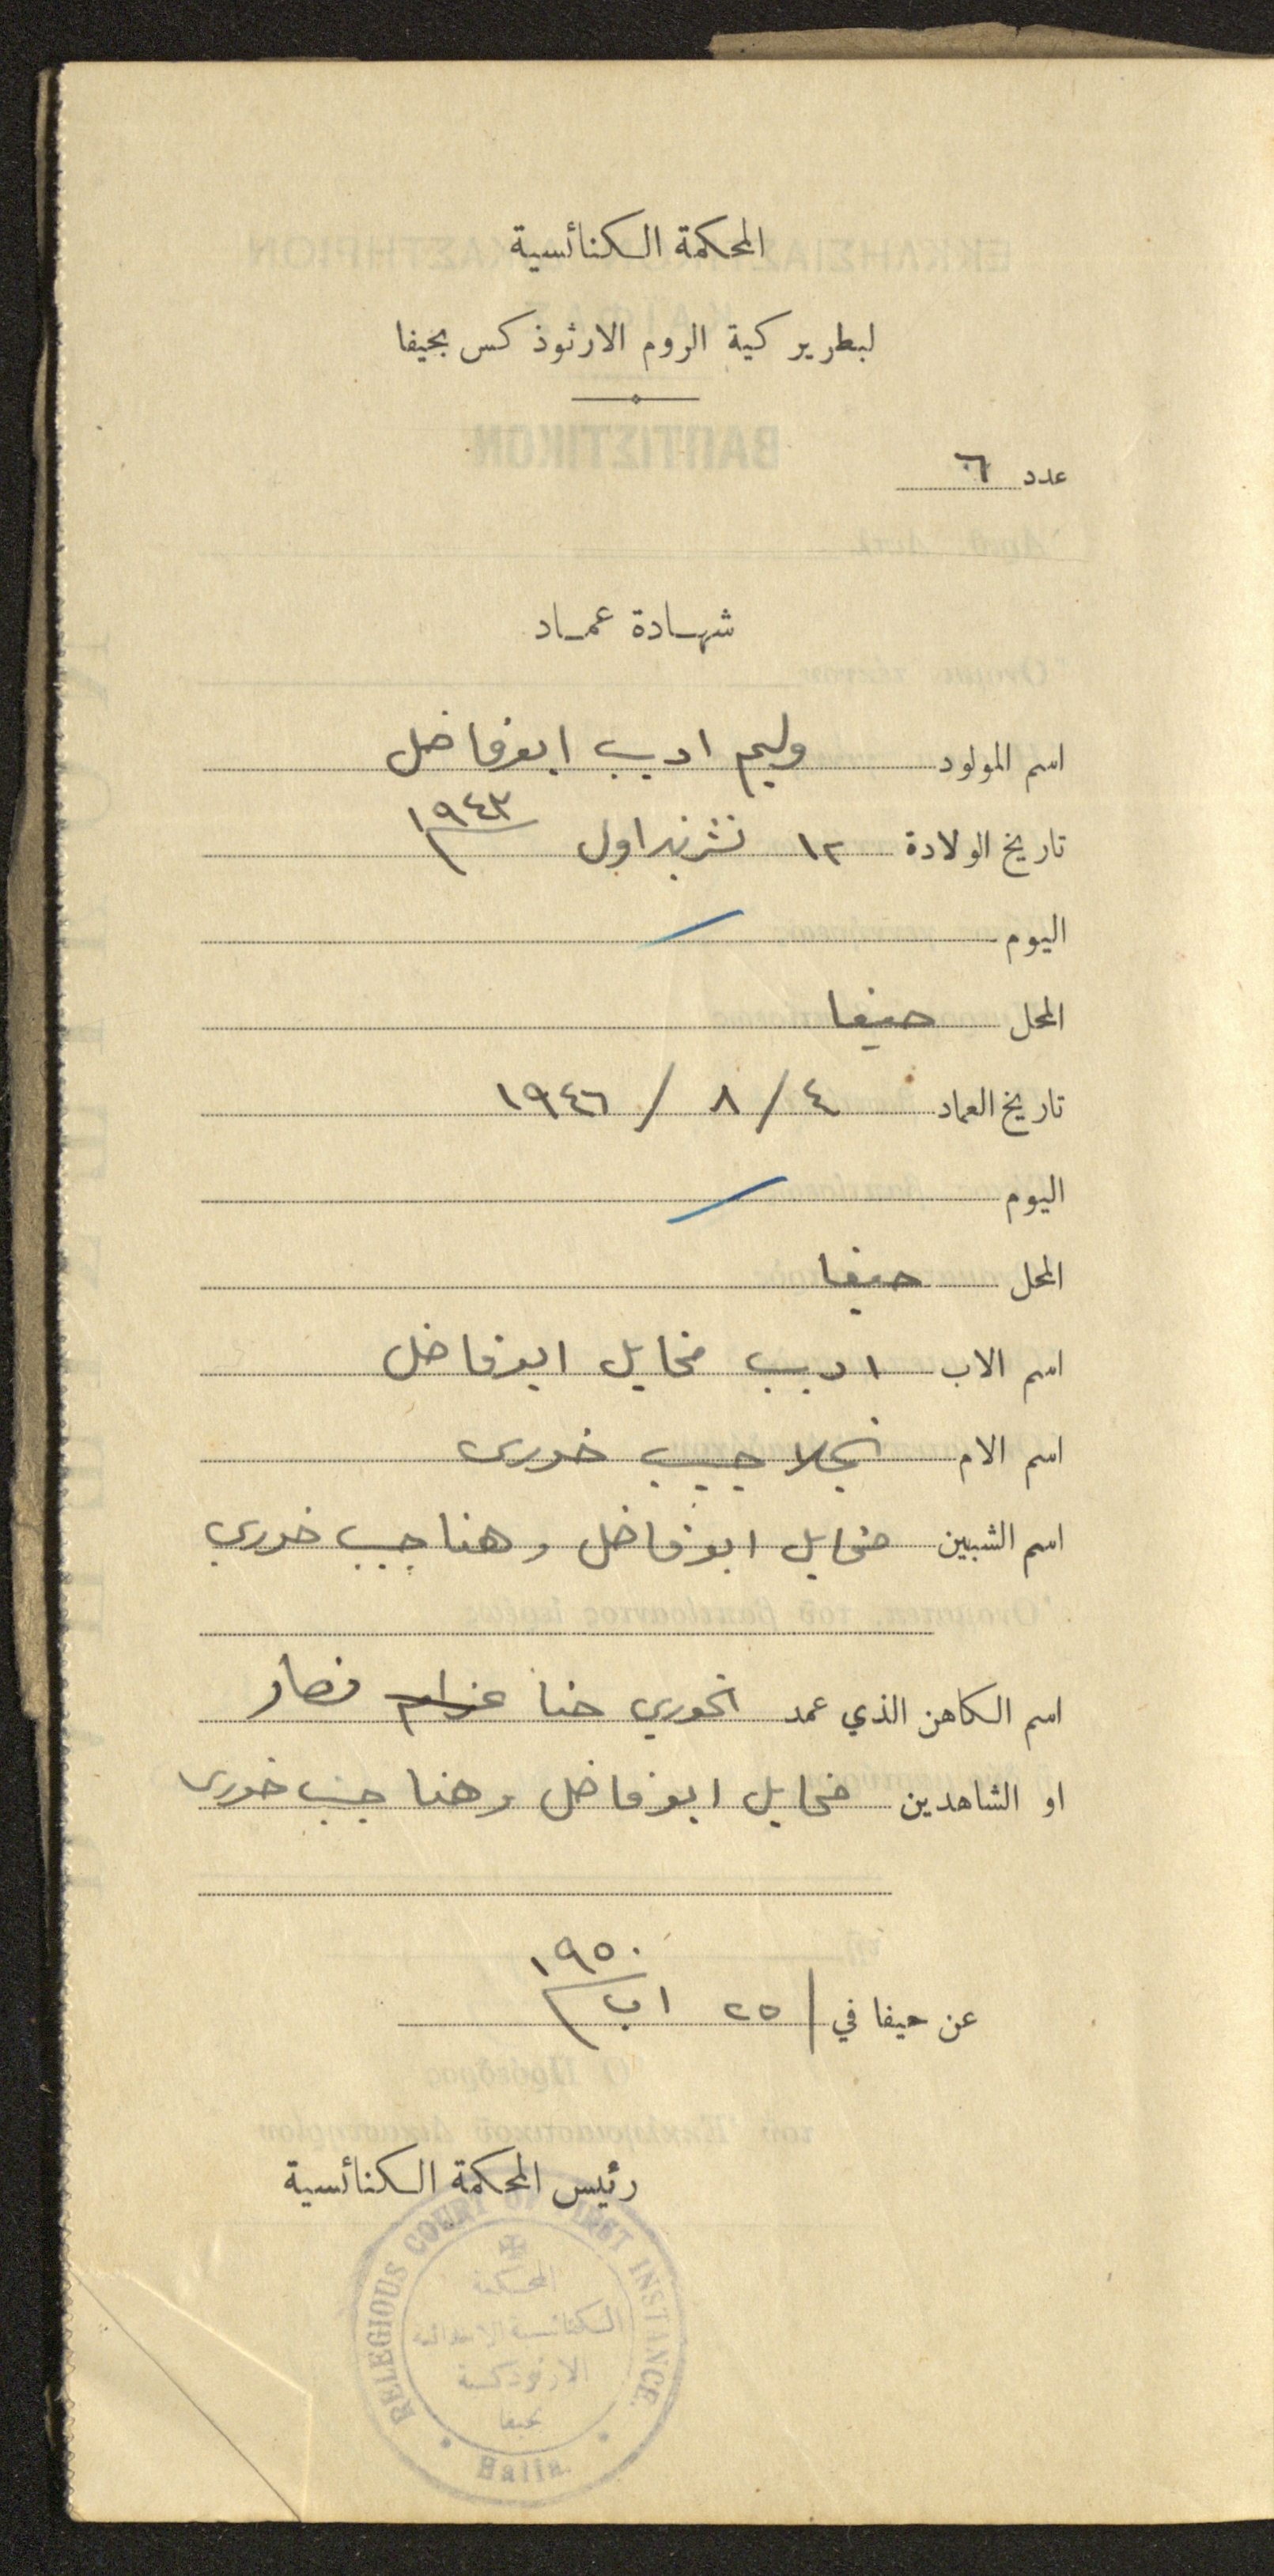 المحكمة الكنائسية
لبطريركية الروم الارثوذكس بحيفا
عدد ٦
شهادة عماد
اسم المولود وليم اديب ابوفاضل
تاريخ الولادة ١٢ تشرين اول ١٩٤٣
اليوم
المحل حيفا
تاريخ العماد ٤ / ٨ / ١٩٤٦
اليوم
المحل حيفا
اسم الاب اديب مخايل ابوفاضل
اسم الام نجلا حبيب خوري
اسم الشبين مخايل ابوفاضل وهنا حبيب خوري
اسم الكاهن الذي عمد الخوري حنا عزام نصار
او الشاهدين مخايل ابوفاضل وهنا حبيب خوري
عن حيفا في ٢٥ اب ١٩٥٠
رئيس المحكمة الكنائسية
RELEGIOUS COURT OF FIRST INSTANCE.
المحكمة
الكنائسية الابتدائية
الارثوذكسية
بحيفا
Haifa